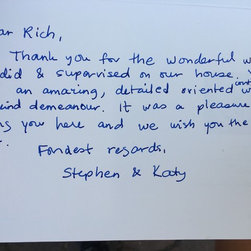 ar Rich,
Thank you for the wonderful w
did & supervised on our house.
an amazing, detailed oriented
kind demeanour. It was a pleasure
ng you here and we wish you the
Fondest regards,
Stephen & Katy